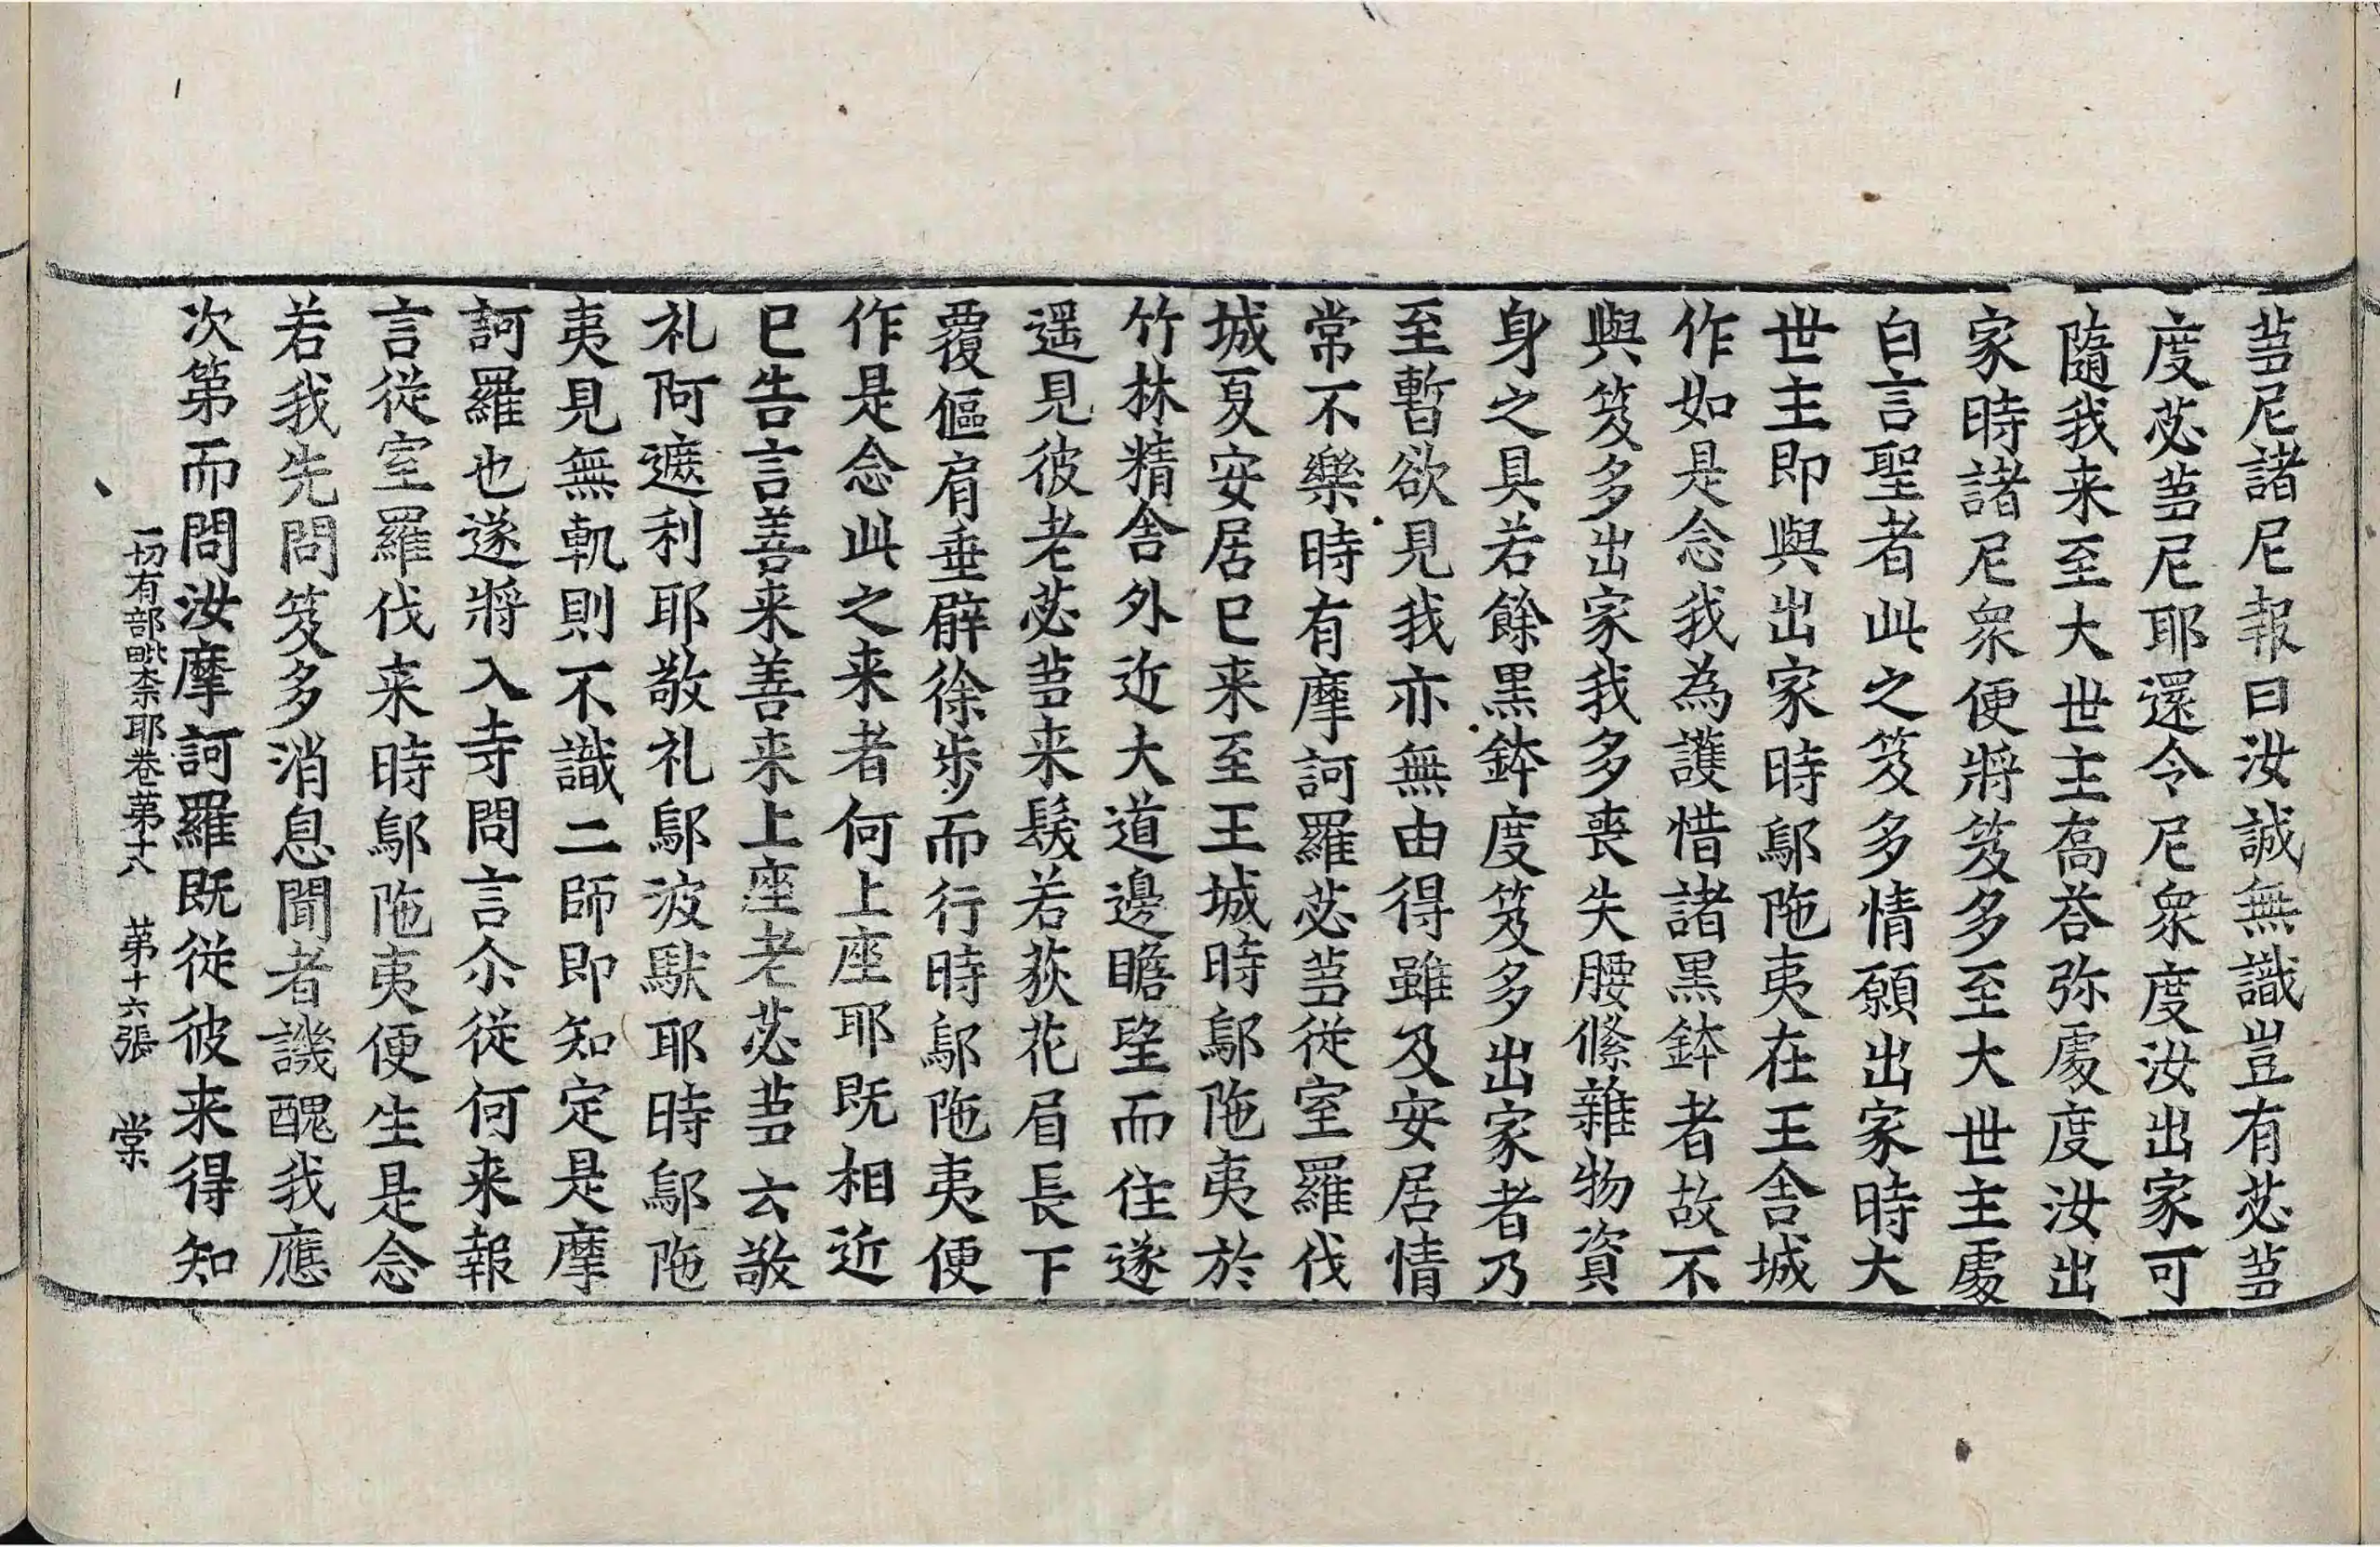 蒭尼諸尼報曰汝誠無識豈有苾蒭
度苾蒭尼耶還令尼衆度汝出家可
隨我来至大世主喬荅弥處度汝出
家時諸尼衆便將笈多至大世主處
白言聖者此之笈多情願出家時大
世主即與出家時鄔陁夷在王舍城
作如是念我為護惜諸黒鉢者故不
與笈多出家我多喪失腰絛雜物資
身之具若餘黒鉢度笈多出家者乃
至暫欲見我亦無由得雖及安居情
常不樂時有摩訶羅苾蒭從室羅伐
城夏安居已来至王城時鄔陁夷於
竹林精舍外近大道邊瞻望而住遂
遥見彼老苾蒭来鬚若荻花眉長下
覆傴肩垂臂徐步而行時鄔陁夷便
作是念此之来者何上座耶既相近
已告言善来善来上座老苾蒭云敬
礼阿遮利耶敬礼鄔波馱耶時鄔陁
夷見無軌則不識二師即知定是摩
訶羅也遂將入寺問言尒從何来報
言從室羅伐来時鄔陁夷便生是念
若我先問笈多消息聞者譏醜我應
次第而問汝摩訶羅既從彼来得知
一切有部毗柰耶卷第十八 第十六張 棠